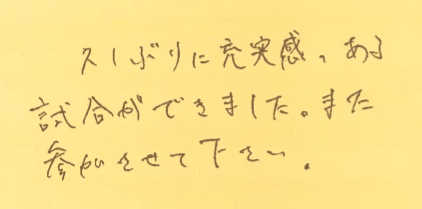 久しぶりに充実感、ある
試合ができました。また
参加させて下さい。